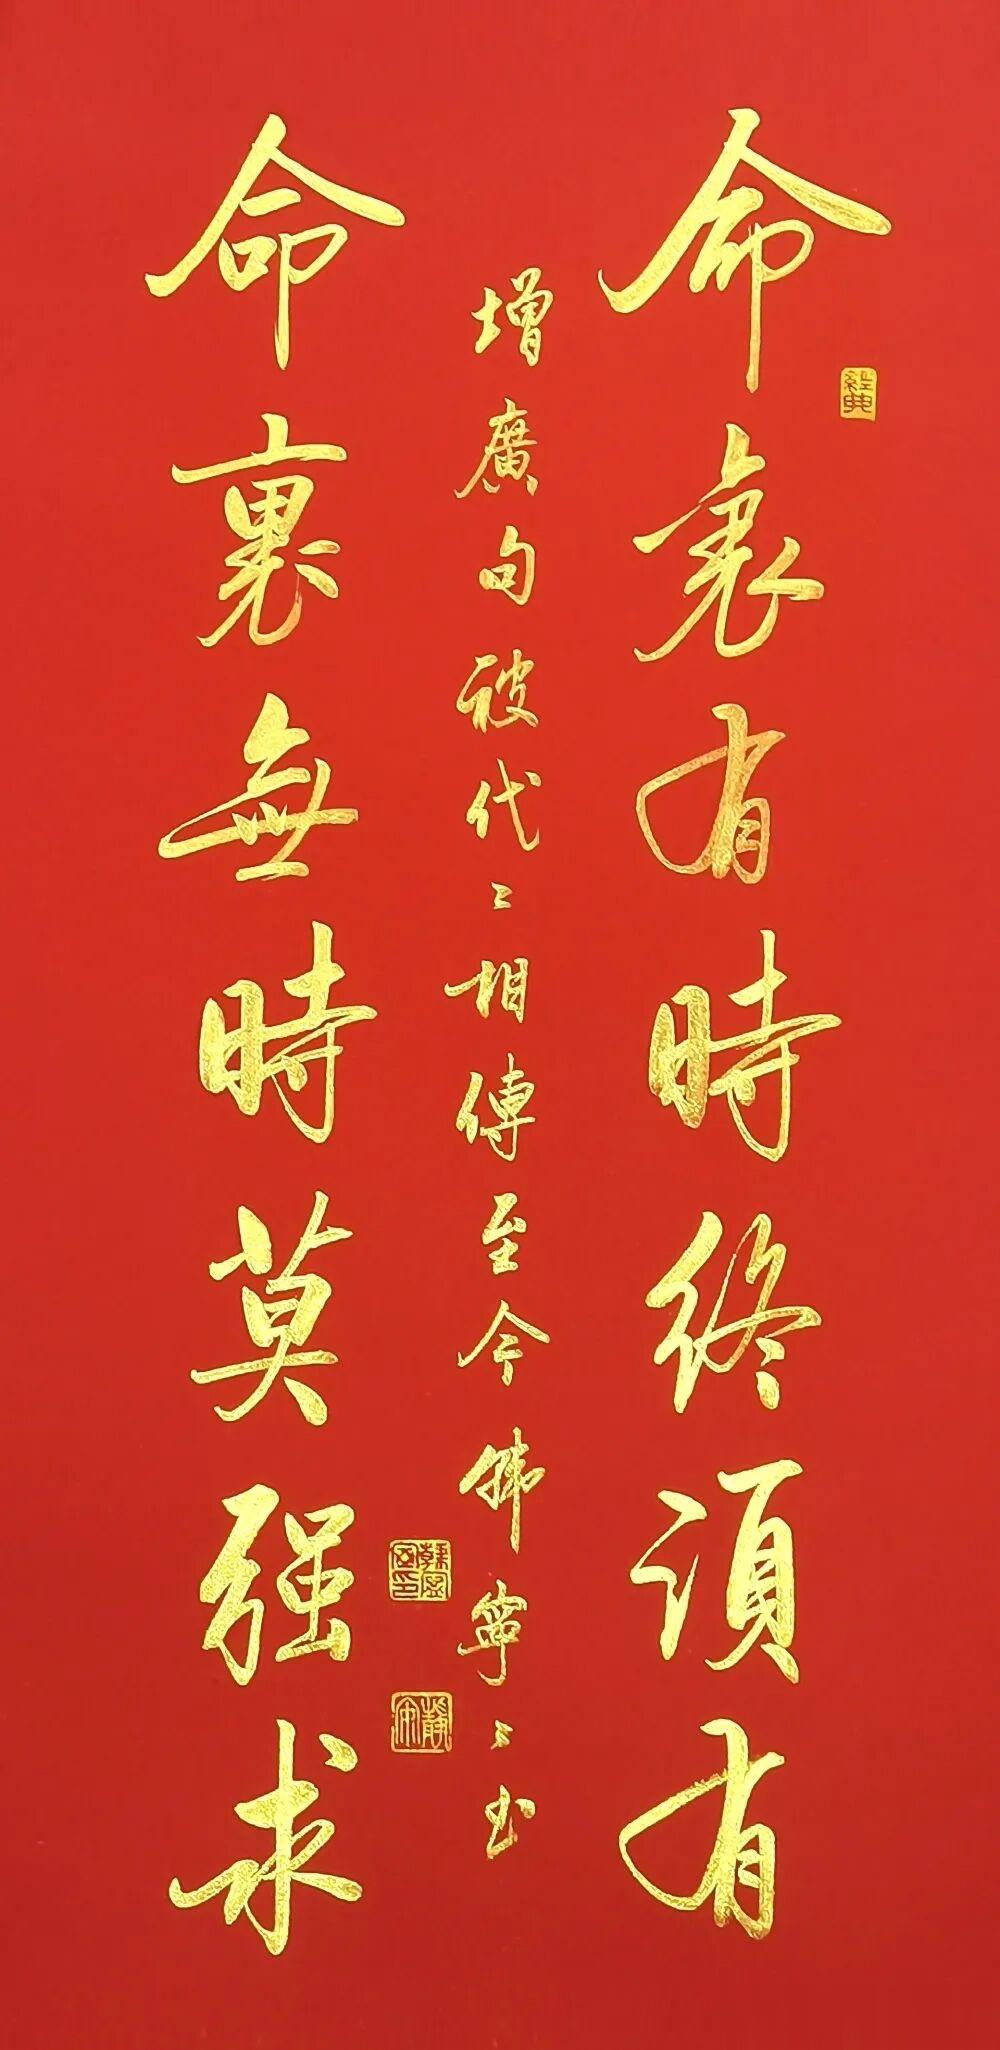 命裏有時終須有
經典
增廣句被代〻相傳至今韩寧〻书
命裏無時莫强求